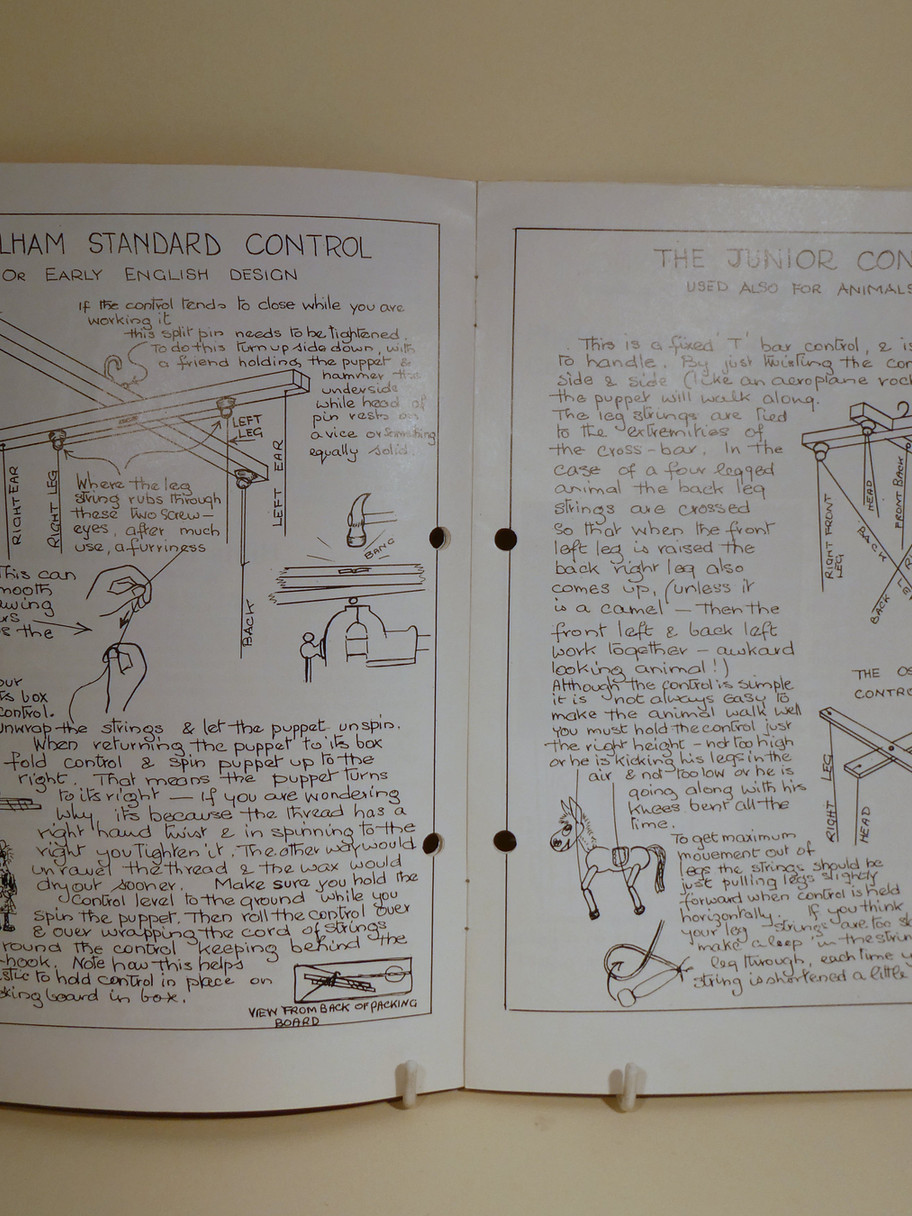 LHAM STANDARD CONTROL
OR EARLY ENGLISH DESIGN
If the control tends to close while you are
working it
this split pin needs to be tightened.
To do this turn up side down, with
a friend holding the puppet &
hammer the
underside
while head of
pin rests on
a vice or something
equally solid.
LEFT
LEG
RIGHT EAR
RIGHT LEG
LEFT EAR
BACK
Where the leg
string rubs through
these two screw-
eyes, after much
use, a furriness
BANG
This can
mooth
wing
rs
s the
our
ts box
ontrol.
unwrap the strings & let the puppet unspin.
When returning the puppet to its box
fold control & spin puppet up to the
right. That means the puppet turns
to its right — If you are wondering
why, its because the thread has a
right hand twist & in spinning to the
right you tighten it. The other way would
unravel the thread & the wax would
dry out sooner. Make sure you hold the
control level to the ground while you
spin the puppet. Then roll the control over
& over wrapping the cord of strings
round the control keeping behind the
hook. Note how this helps
stic to hold control in place on
king board in box.
VIEW FROM BACK OF PACKING
BOARD
THE JUNIOR CON
USED ALSO FOR ANIMALS
This is a fixed 'T' bar control, & is
to handle. By just twisting the con
side & side (like an aeroplane rock
the puppet will walk along.
The leg strings are tied
to the extremities of
the cross-bar. In the
case of a four legged
animal the back leg
strings are crossed
so that when the front
left leg is raised the
back right leg also
comes up, (unless it
is a camel — then the
front left & back left
work together — awkard
looking animal!)
Although the control is simple
it is not always easy to
make the animal walk well
you must hold the control just
the right height - not too high
or he is kicking his legs in the
air & not too low or he is
going along with his
knees bent all the
time.
RIGHT FRONT
LEG
HEAD
FRONT BACK
BACK
BACK
THE OS
CONTRO
RIGHT LEG
HEAD
To get maximum
movement out of
legs the strings should be
just pulling legs slightly
forward when control is held
horizontally. If you think
your leg strings are too sl
make a loop in the strin
leg through, each time y
string is shortened a little